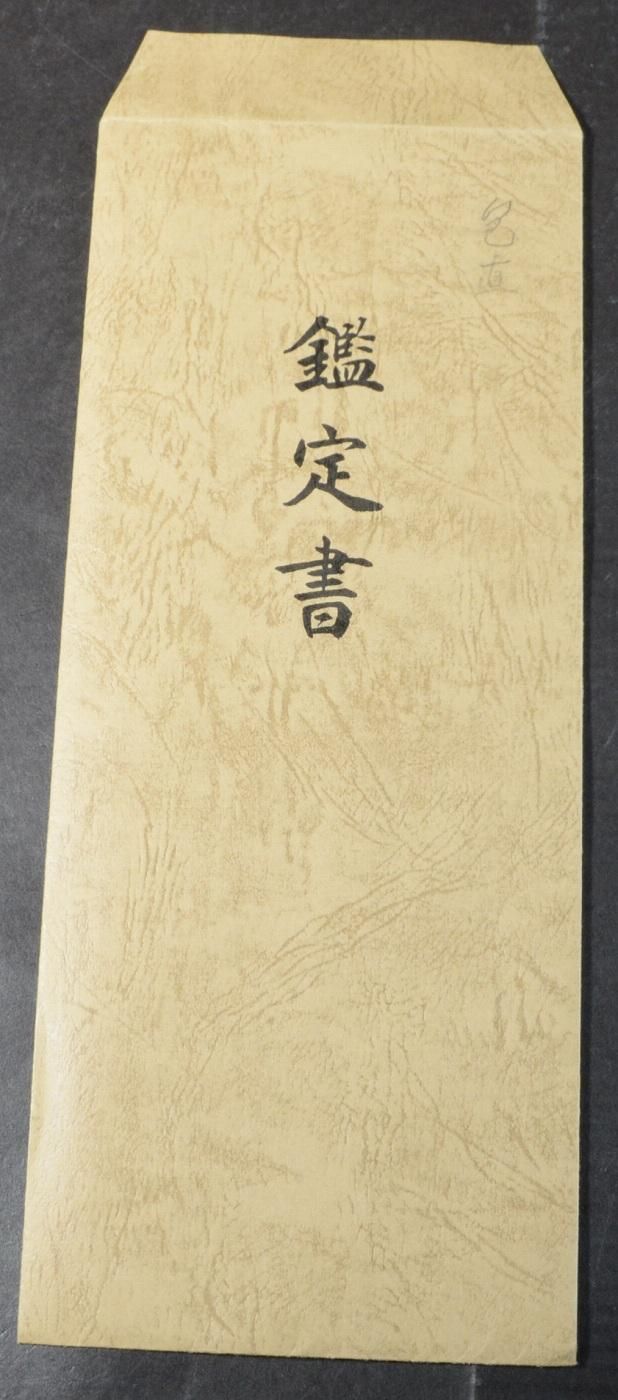 包直
鑑定書